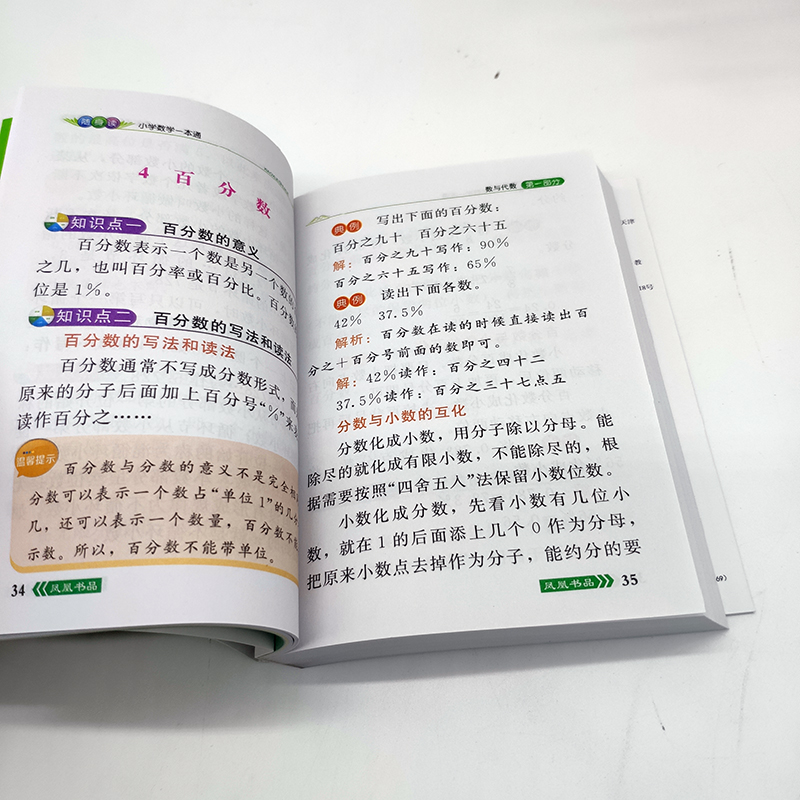 随身读 小学数学一本通
4 百分数
知识点一 百分数的意义
百分数表示一个数是另一个数的
之几，也叫百分率或百分比。百分数
位是1%。
知识点二 百分数的写法和读法
百分数的写法和读法
百分数通常不写成分数形式，
原来的分子后面加上百分号“%”来
读作百分之……
温馨提示
百分数与分数的意义不是完全相
分数可以表示一个数占“单位1”的几
几，还可以表示一个数量，百分数不能
示数。所以，百分数不能带单位。
34 凤凰书品
数与代数 第一部分
典例 写出下面的百分数：
百分之九十 百分之六十五
解：百分之九十写作：90%
百分之六十五写作：65%
典例 读出下面各数。
42% 37.5%
解析：百分数在读的时候直接读出百
分之＋百分号前面的数即可。
解：42%读作：百分之四十二
37.5%读作：百分之三十七点五
分数与小数的互化
分数化成小数，用分子除以分母。能
除尽的就化成有限小数，不能除尽的，根
据需要按照“四舍五入”法保留小数位数。
小数化成分数，先看小数有几位小
数，就在1的后面添上几个0作为分母，
把原来小数点去掉作为分子，能约分的要
凤凰书品 35
天津
教
18号
69)